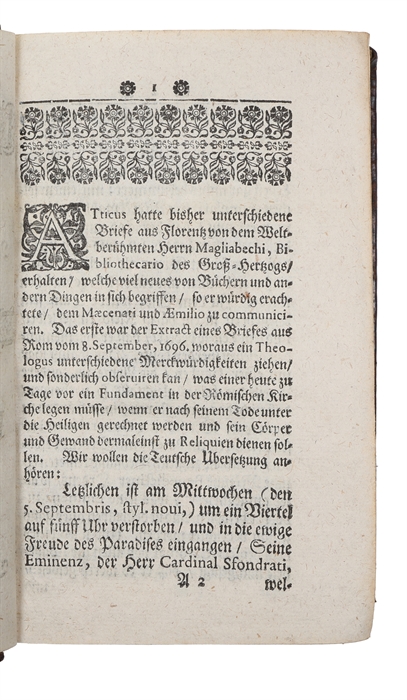 1
ATticus hatte bisher unterschiedene
Briefe aus Florentz von dem Welt-
berühmten Herrn Magliabechi, Bi-
bliothecario des Groß-Hertzogs/
erhalten/ welche viel neues von Büchern und an-
dern Dingen in sich begriffen/ so er würdig erach-
tete/ dem Mæcenati und Æmilio zu communici-
ren. Das erste war der Extract eines Briefes aus
Rom vom 8. September, 1696. woraus ein Theo-
logus unterschiedene Merckwürdigkeiten ziehen/
und sonderlich observiren kan/ was einer heute zu
Tage vor ein Fundament in der Römischen Kir-
che legen müsse/ wenn er nach seinem Tode unter
die Heiligen gerechnet werden und sein Cörper
und Gewand dermaleinst zu Reliquien dienen sol-
len. Wir wollen die Teutsche Übersetzung an-
hören:
Letzlichen ist am Mittwochen (den
5. Septembris, styl. novi,) um ein Viertel
auf fünff Uhr verstorben/ und in die ewige
Freude des Paradises eingangen/ Seine
Eminenz, der Herr Cardinal Sfondrati,
A 2 wel-